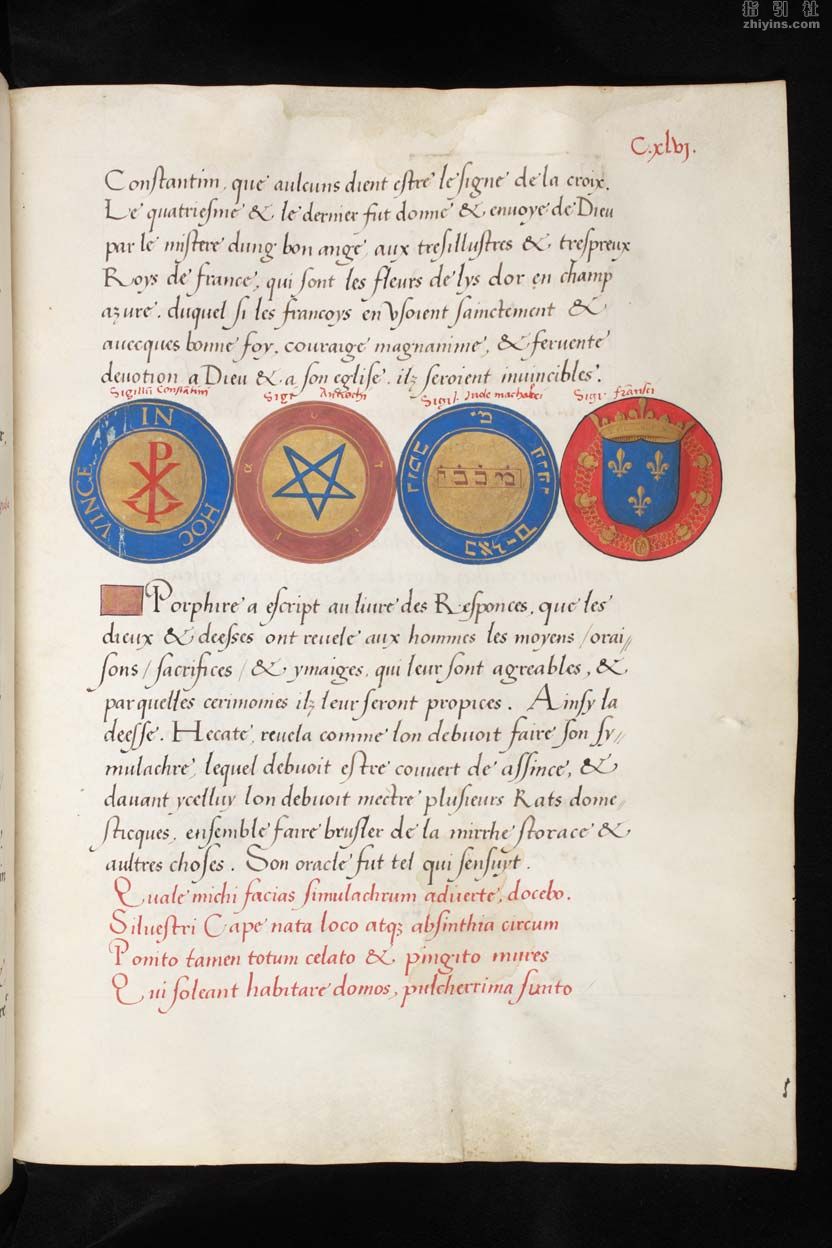 指引社
zhiyins.com
C.xlvj.
Constantin, que aulcuns dient estre le signe de la croix.
Le quatriesme & le dernier fut donne & enuoye de Dieu
par le mistere dung bon ange, aux tresillustres & trespreux
Roys de france, qui sont les fleurs de lys dor en champ
azure. duquel si les francoys en vsoient sainctement &
auecques bonne foy, couraige magnanime, & feruente
deuotion a Dieu & a son eglise. ilz seroient inuincibles.
Sigillū Constātini Sigi Antiochi Sigil. Jude machabei Sigi frāsci
IN HOC VINCE
מכבי
Porphire a escript au liure des Responces, que les
dieux & deesses ont reuele aux hommes les moyens / orai//
sons / sacrifices / & ymaiges, qui leur sont agreables, &
par quelles cerimonies ilz leur seront propices. Ainsy la
deesse. Hecate, reuela comme lon debuoit faire son sy//
mulachre, lequel debuoit estre couuert de assince, &
dauant ycelluy lon debuoit mectre plusieurs Rats dome//
sticques, ensemble faire brusler de la mirrhe storace &
aultres choses. Son oracle fut tel qui sensuyt.
Quale michi facias simulachrum aduerte, docebo.
Siluestri Cape nata loco atqꝫ absinthia circum
Ponito tamen totum celato & pingito mures
Qui soleant habitare domos, pulcherrima sunto